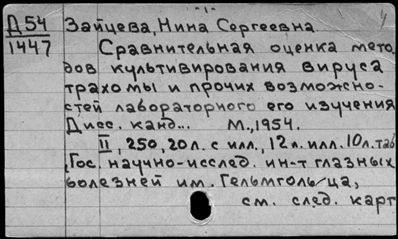 - 1 -
Д 54
1447
Зайцева, Нина Сергеевна
Сравнительная оценка мето-
дов культивирования вируса
трахомы и прочих возможно-
стей лабораторного его изучения
Дисс. канд... М., 1954.
II, 250, 20 л. с илл., 12 л. илл. 10 л. таб
Гос. научно-исслед. ин-т глазных
болезней им. Гельмгольца,
см. след. карт